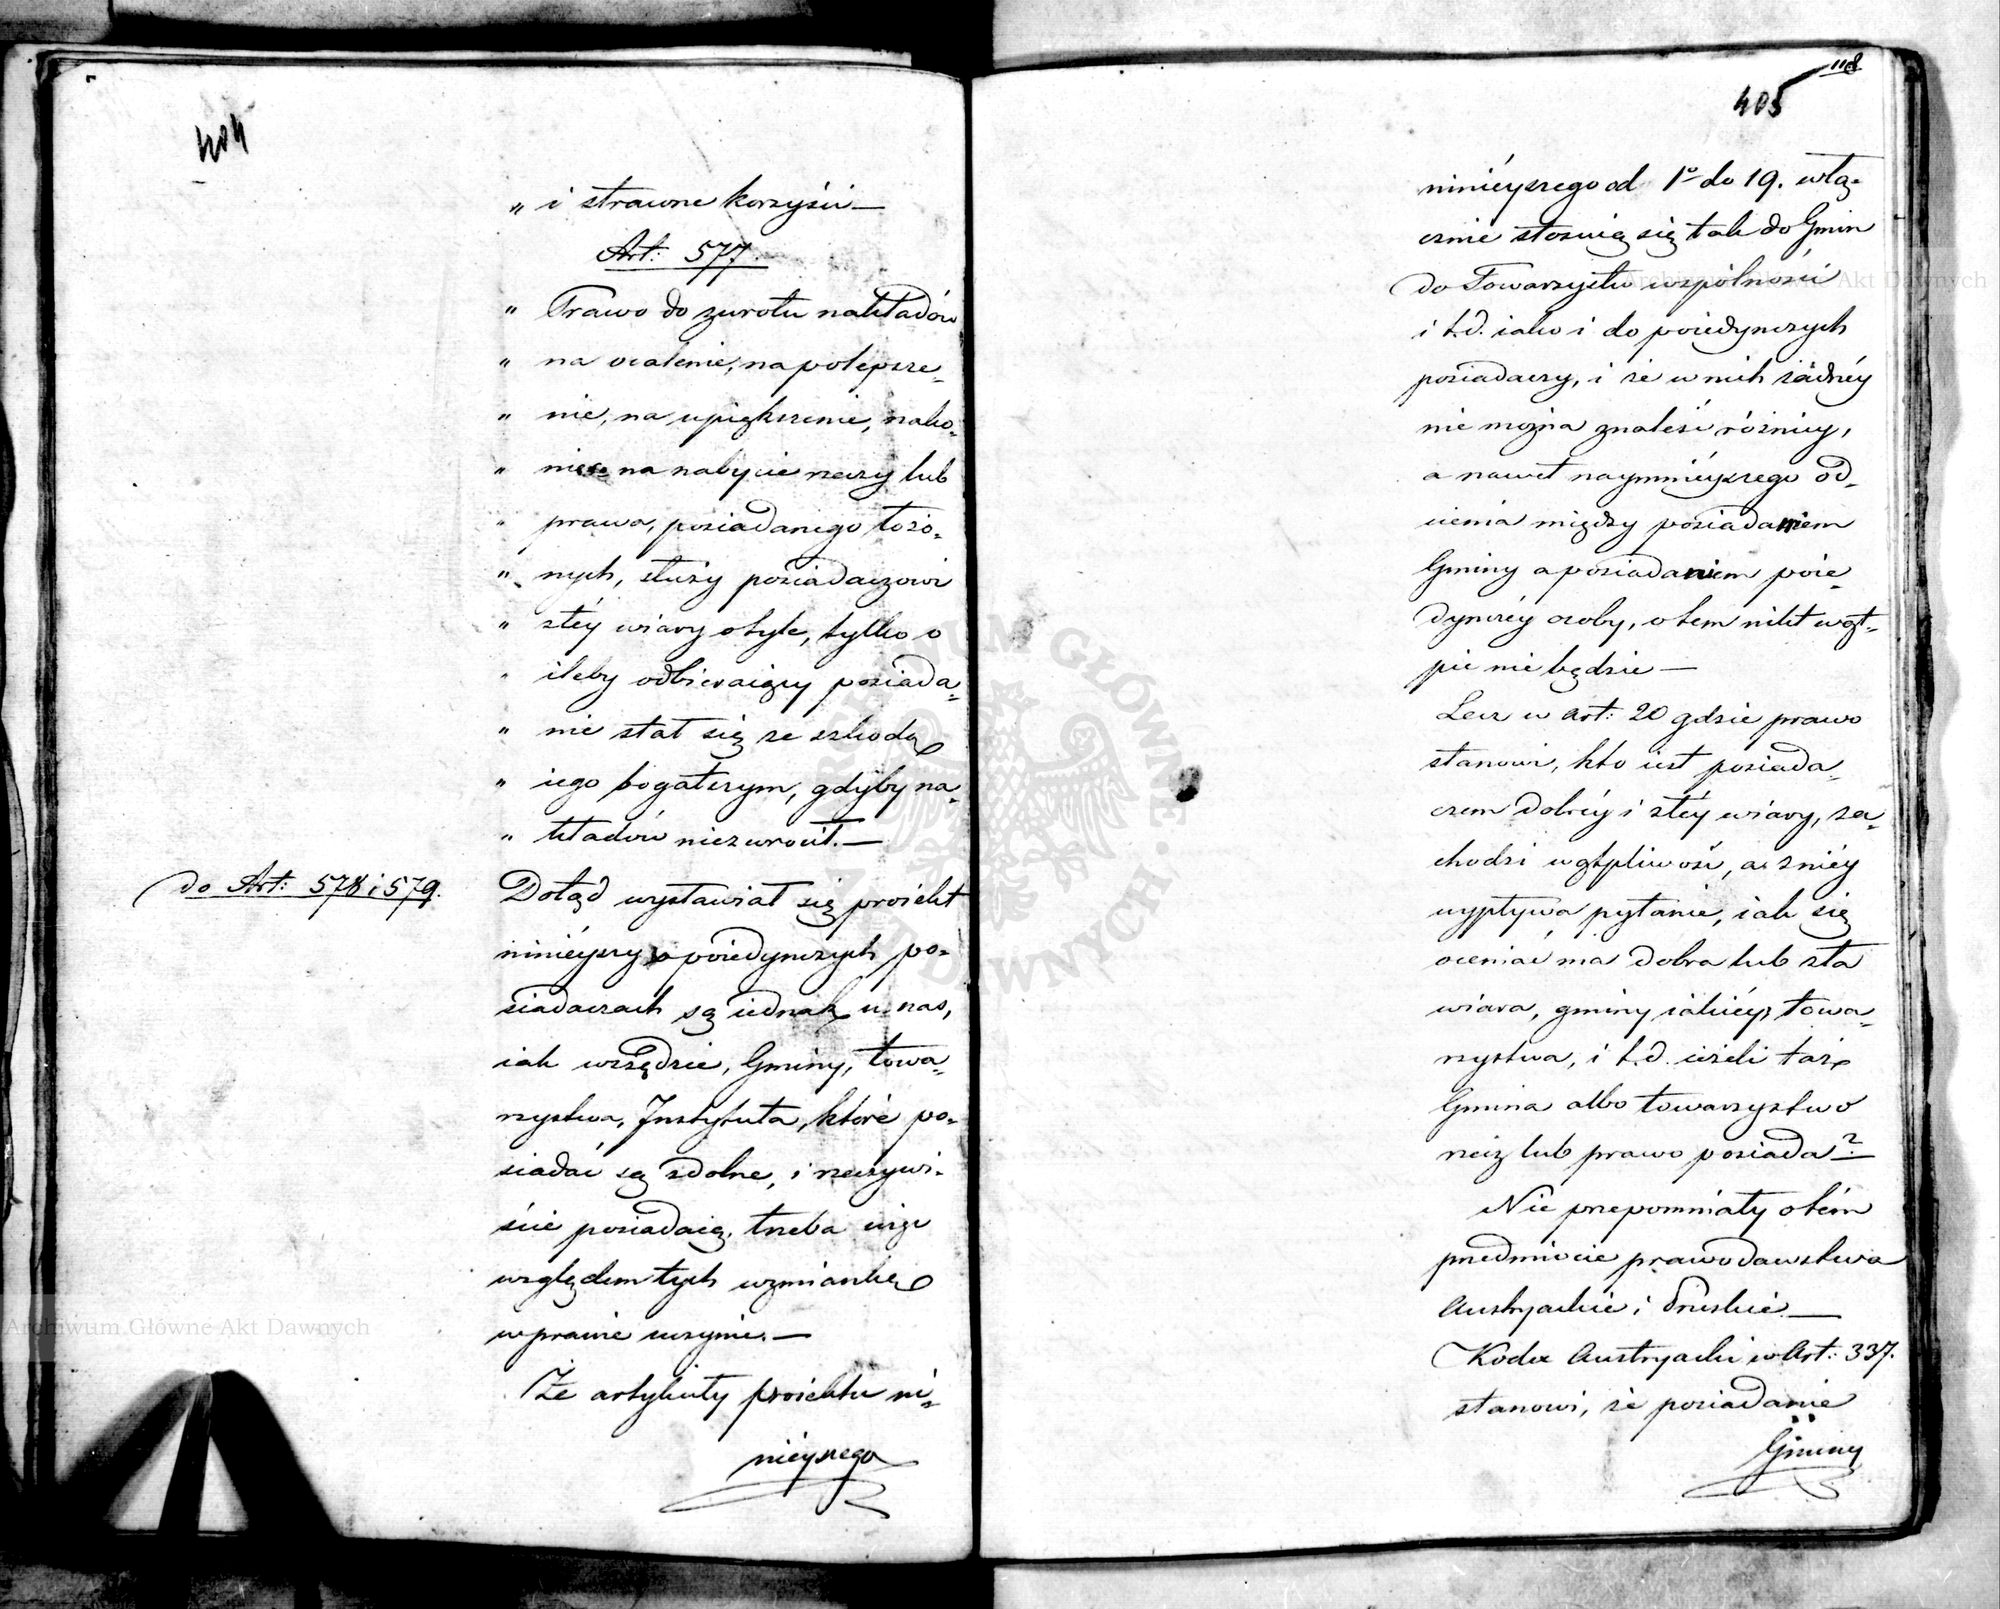 404
„ i strawne korzyści —
Art: 577.
„ Prawo do zwrotu nakładów
„ na ocalenie, na polepsze=
„ nie, na upiększenie, nako=
„ niec na nabycie rzeczy lub
„ prawa, posiadanego łożo=
„ nych, służy posiadaczowi
„ złéy wiary otyle, tylko o
„ ileby odbieraiący posiada=
„ nie stał się ze szkodą
„ iego bogatszym, gdyby na=
„ kładów niezwrócił. —
do Art: 578 i 579.
Dotąd wystawiał się proiekt
ninieyszy o poiedynczych po=
siadaczach są iednak u nas,
iak wszędzie, Gminy, towa=
rzystwa, Instytuta, które po=
siadać są zdolne, i rzeczywi=
ście posiadaią, trzeba więc
względem tych wzmiankę
w prawie uczynić. —
Że artykuły proiektu ni=
nieyszego
118
405
ninieyszego od 1º do 19. włą=
cznie stosuią się tak do Gmin
do Towarzystw wspólności
i t.d. iako i do poiedynczych
posiadaczy, i że w nich żadnéy
nie można znaleść różnicy,
a nawet naymnieyszego od=
cienia między posiadaniem
Gminy a posiadaniem poie=
dynczéy osoby, o tem nikt wąt=
pić nie będzie —
Lecz w art: 20 gdzie prawo
stanowi, kto iest posiada=
czem dobréy i złéy wiary, za=
chodzi wątpliwość, a z niéy
wypływa pytanie, iak się
oceniać ma dobra lub zła
wiara, gminy iakiéy, towa=
rzystwa, i t.d. ieżeli taż
Gmina albo towarzystwo
rzecz lub prawo posiada?
Nie przepomniały o tém
przedmiocie prawodawstwa
Austryackie i Pruskie —
Kodex Austryacki w Art: 337.
stanowi, że posiadanie
Gminy
Archiwum Główne Akt Dawnych
Archiwum Główne Akt Dawnych
ARCHIWUM GŁÓWNE AKT DAWNYCH